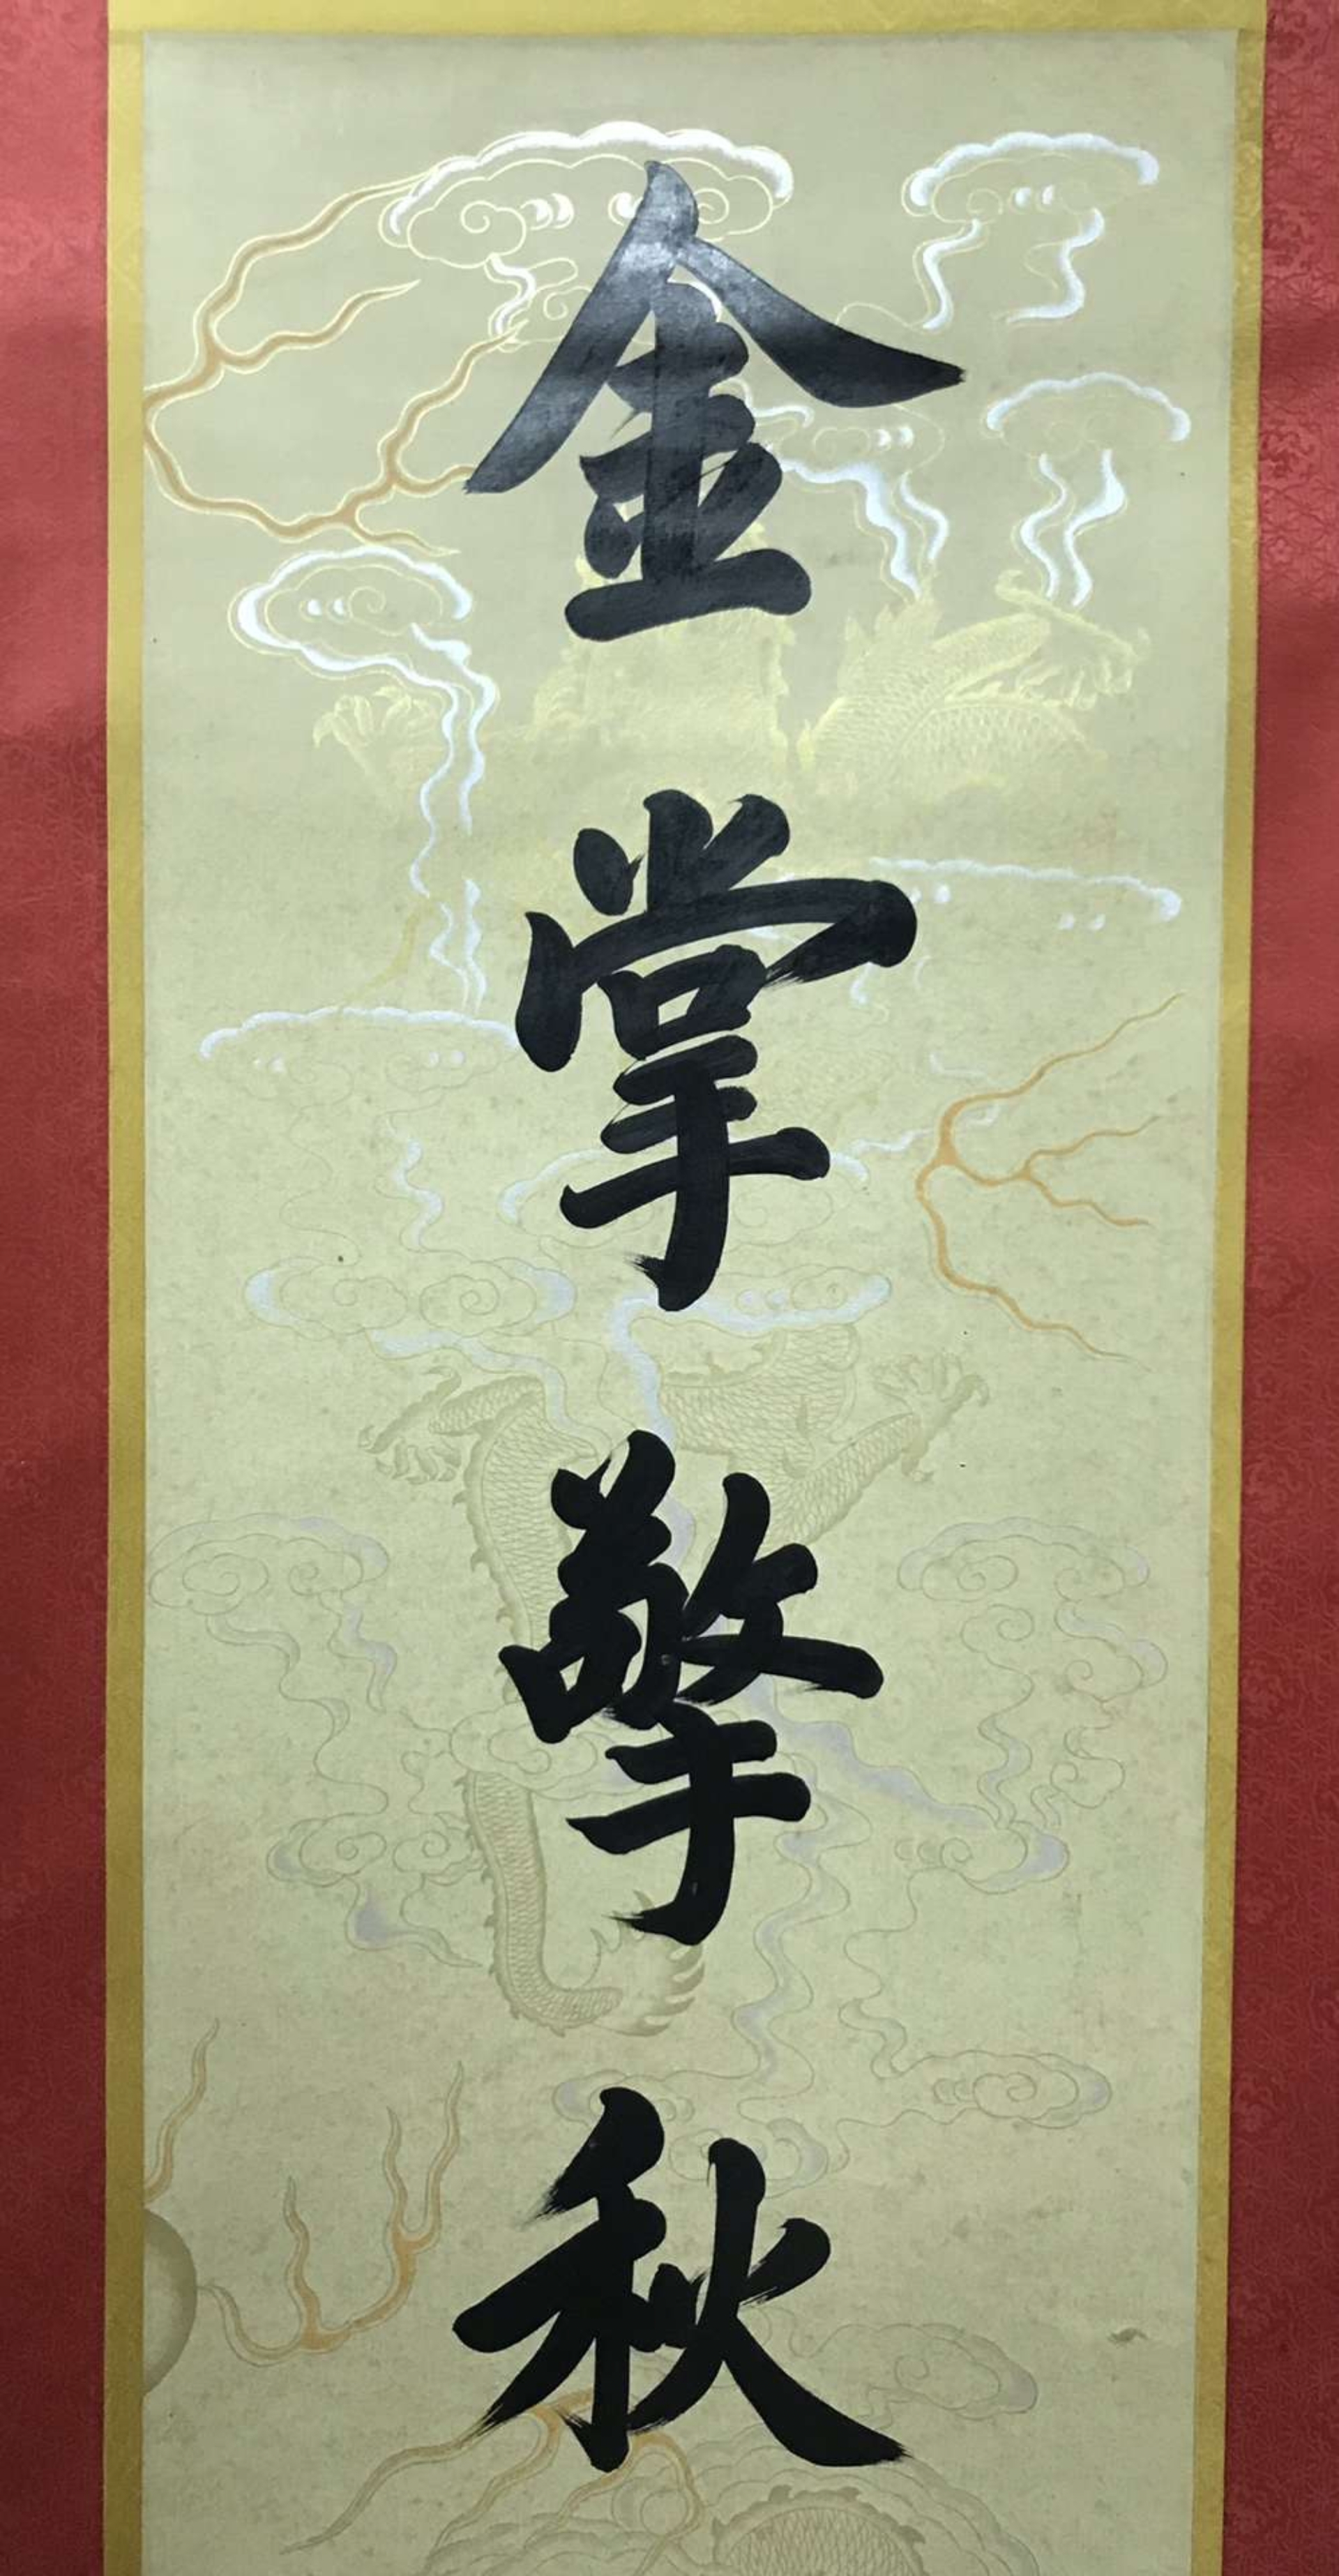 金掌擎秋